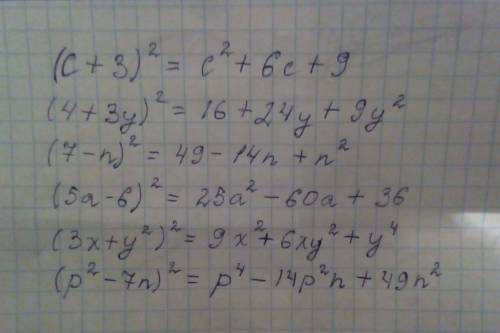 (c + 3)² = c² + 6c + 9
(4 + 3y)² = 16 + 24y + 9y²
(7 - n)² = 49 - 14n + n²
(5a - 6)² = 25a² - 60a + 36
(3x + y²)² = 9x² + 6xy² + y⁴
(p² - 7n)² = p⁴ - 14p²n + 49n²